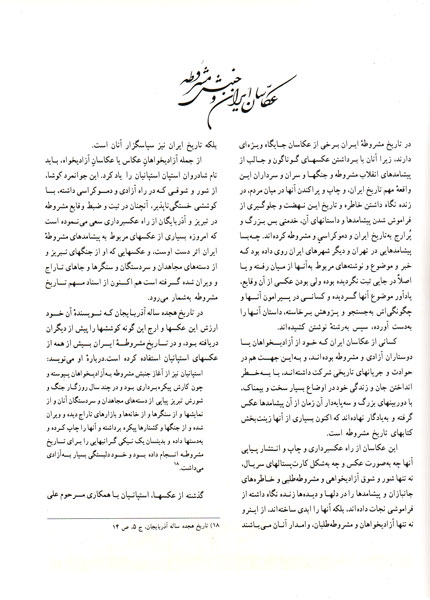 عکاسان ایران و جنبش مشروطه
در تاریخ مشروطهٔ ایران برخی از عکاسان جایگاه ویژه‌ای
دارند، زیرا آنان با برداشتن عکسهای گوناگون و جالب از
پیشامدهای انقلاب مشروطه و جنگها و سران و سرداران این
واقعهٔ مهم تاریخ ایران، و چاپ و پراکندن آنها در میان مردم، در
زنده نگاه داشتن خاطره و تاریخ این نهضت و جلوگیری از
فراموش شدن پیشامدها و داستانهای آن، خدمتی بس بزرگ و
پُرارج به‌تاریخ ایران و دموکراسی و مشروطه کرده‌اند. چه‌بسا
پیشامدهایی در تهران و دیگر شهرهای ایران روی داده بود که
خبر و موضوع و نوشته‌های مربوط به‌آنها از میان رفته و یا
اصلاً در جایی ثبت نگردیده بوده ولی بودن عکسی از آن وقایع،
یادآور موضوع آنها گردیده و کسانی در پیرامون آنها و
چگونگی‌اش به‌جستجو و پژوهش برخاسته، داستان آنها را
به‌دست آورده، سپس به‌رشتهٔ نوشتن کشیده‌اند.
کسانی از عکاسان ایران که خود از آزادیخواهان یا
دوستاران آزادی و مشروطه بوده‌اند، و به‌این جهت هم در
حوادث و جریانهای تاریخی شرکت داشته‌اند، با به‌خطر
انداختن جان و زندگی خود در اوضاع بسیار سخت و بیمناک،
با دوربینهای بزرگ و سه‌پایه‌دار آن زمان از آن پیشامدها عکس
گرفته و به‌یادگار نهاده‌اند که اکنون بسیاری از آنها زینت‌بخش
کتابهای تاریخ مشروطه است.
این عکاسان از راه عکسبرداری و چاپ و انتشار پیاپی
آنها چه به‌صورت عکس و چه به‌شکل کارت‌پستالهای سریال،
نه تنها شور و شوق آزادیخواهی و مشروطه‌طلبی و خاطره‌های
جانبازان و پیشامدها را در دلها و دیده‌ها زنده نگاه داشته از
فراموشی نجات داده‌اند، بلکه آنها را ابدی ساخته‌اند. از اینرو
نه تنها آزادیخواهان و مشروطه‌طلبان، وامدار آنان می‌باشند
بلکه تاریخ ایران نیز سپاسگزار آنان است.
از جمله آزادیخواهانِ عکاس یا عکاسانِ آزادیخواه، باید
نام شادروان استپان استپانیان را یاد کرد. این جوانمرد کوشا،
از شور و شوقی که در راه آزادی و دموکراسی داشته، با
کوششی خستگی‌ناپذیر، آنچنان در ثبت و ضبط وقایع مشروطه
در تبریز و آذربایگان از راه عکسبرداری سعی می‌نموده است
که امروزه بسیاری از عکسهای مربوط به پیشامدهای مشروطهٔ
ایران اثر دست اوست، و عکسهایی که او از جنگهای تبریز و
از دسته‌های مجاهدان و سردستگان و سنگرها و جاهای تاراج
و ویران شده گرفته است هم اکنون از اسناد مهم تاریخ
مشروطه به‌شمار می‌رود.
در تاریخ هجده ساله آذربایجان که نویسندهٔ آن خود
ارزش این عکسها و ارج این گونه کوششها را پیش از دیگران
دریافته بود، و در تاریخ مشروطهٔ ایران بسیش از همه از
عکسهای استپانیان استفاده کرده است، دربارهٔ او می‌نویسد:
استپانیان نیز از آغاز جنبش مشروطه به‌آزادیخواهان پیوسته و
چون کارش پیکره‌برداری بود و در چند سال روزگار جنگ و
شورش تبریز پیاپی از دسته‌های مجاهدان و سردستگان آنان و از
نمایشها و از سنگرها و از خانه‌ها و بازارهای تاراج دیده و ویران
شده و از جنگها و کشتارها پیکره برداشته و آنها را چاپ کرده و
به‌دستها داده و بدینسان یک نیکی گرانبهایی را برای تاریخ
مشروطه انجام داده بود و خود دلبستگی بسیار به‌آزادی
می‌داشت.۱۸
گذشته از عکسها، استپانیان با همکاری مرحوم علی
۱۸) تاریخ هجده ساله آذربایجان، ج ۵، ص ۱۴